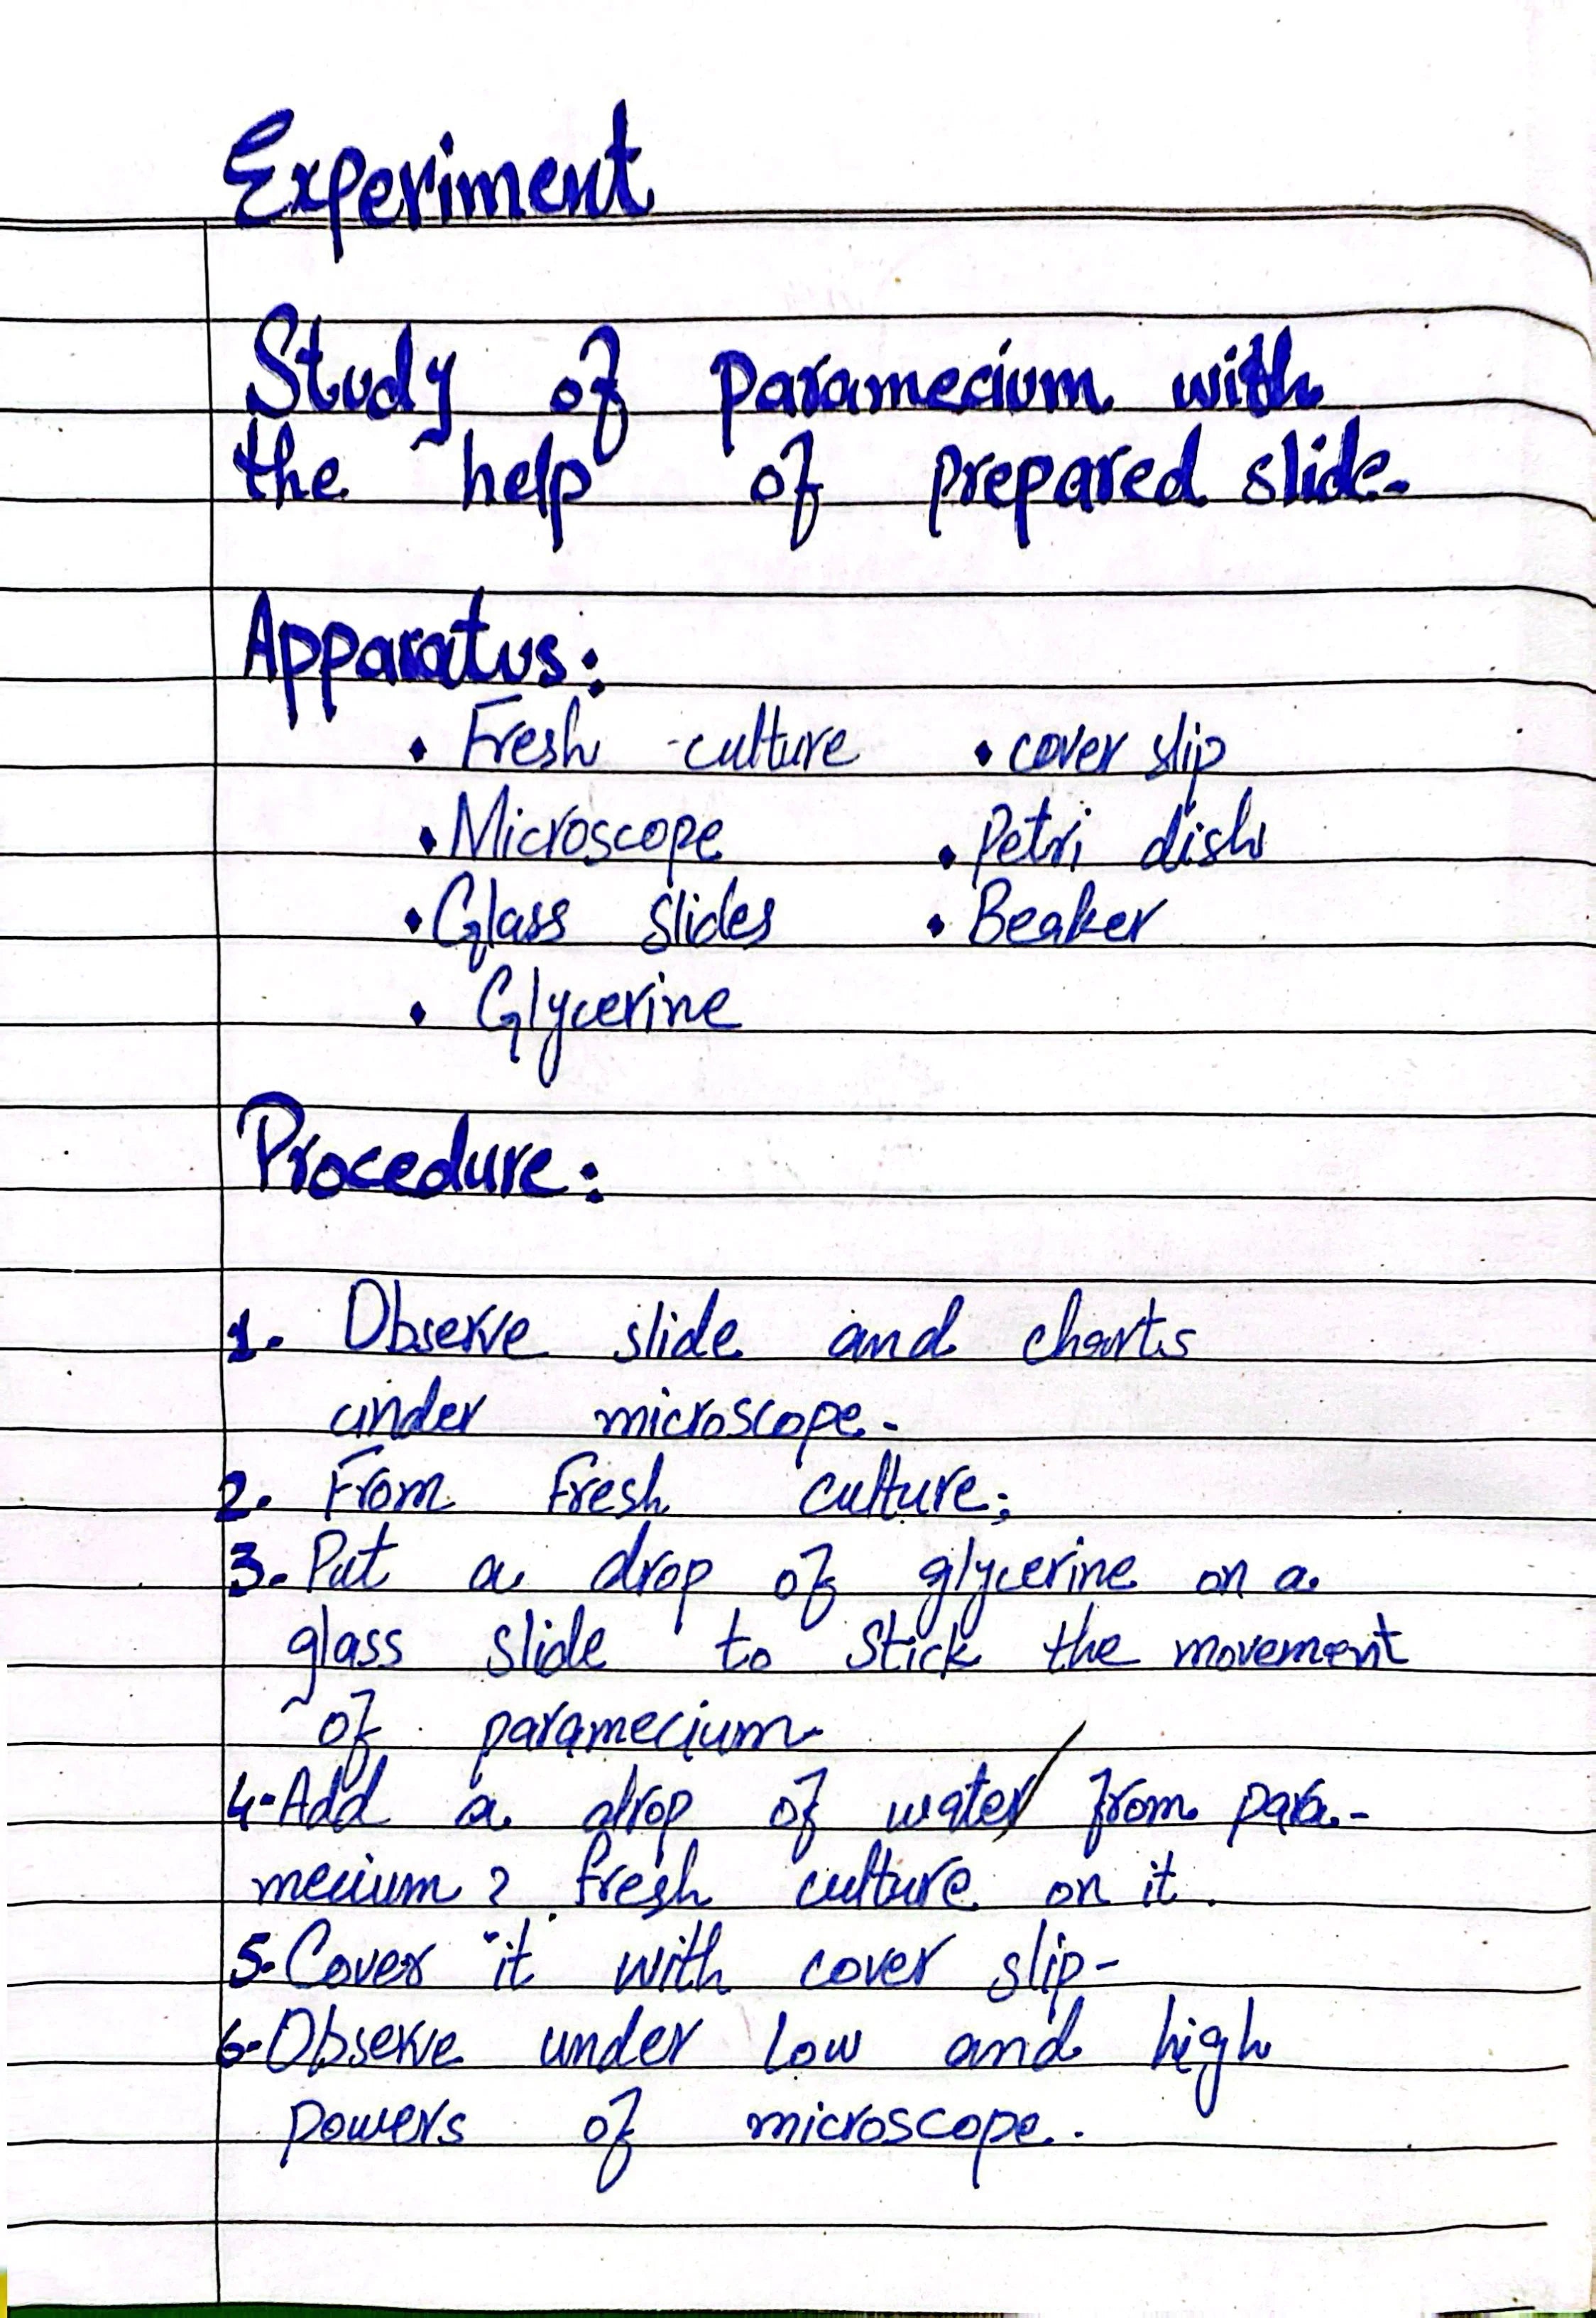 Experiment
Study of paramecium with
the help of prepared slide.
Apparatus:
• Fresh culture • cover slip
• Microscope • Petri dish
• Glass slides • Beaker
• Glycerine
Procedure:
1. Observe slide and charts
under microscope.
2. From Fresh culture;
3. Put a drop of glycerine on a
glass slide to stick the movement
of paramecium.
4. Add a drop of water from para-
mecium ? fresh culture on it.
5. Cover it with cover slip.
6. Observe under low and high
powers of microscope.